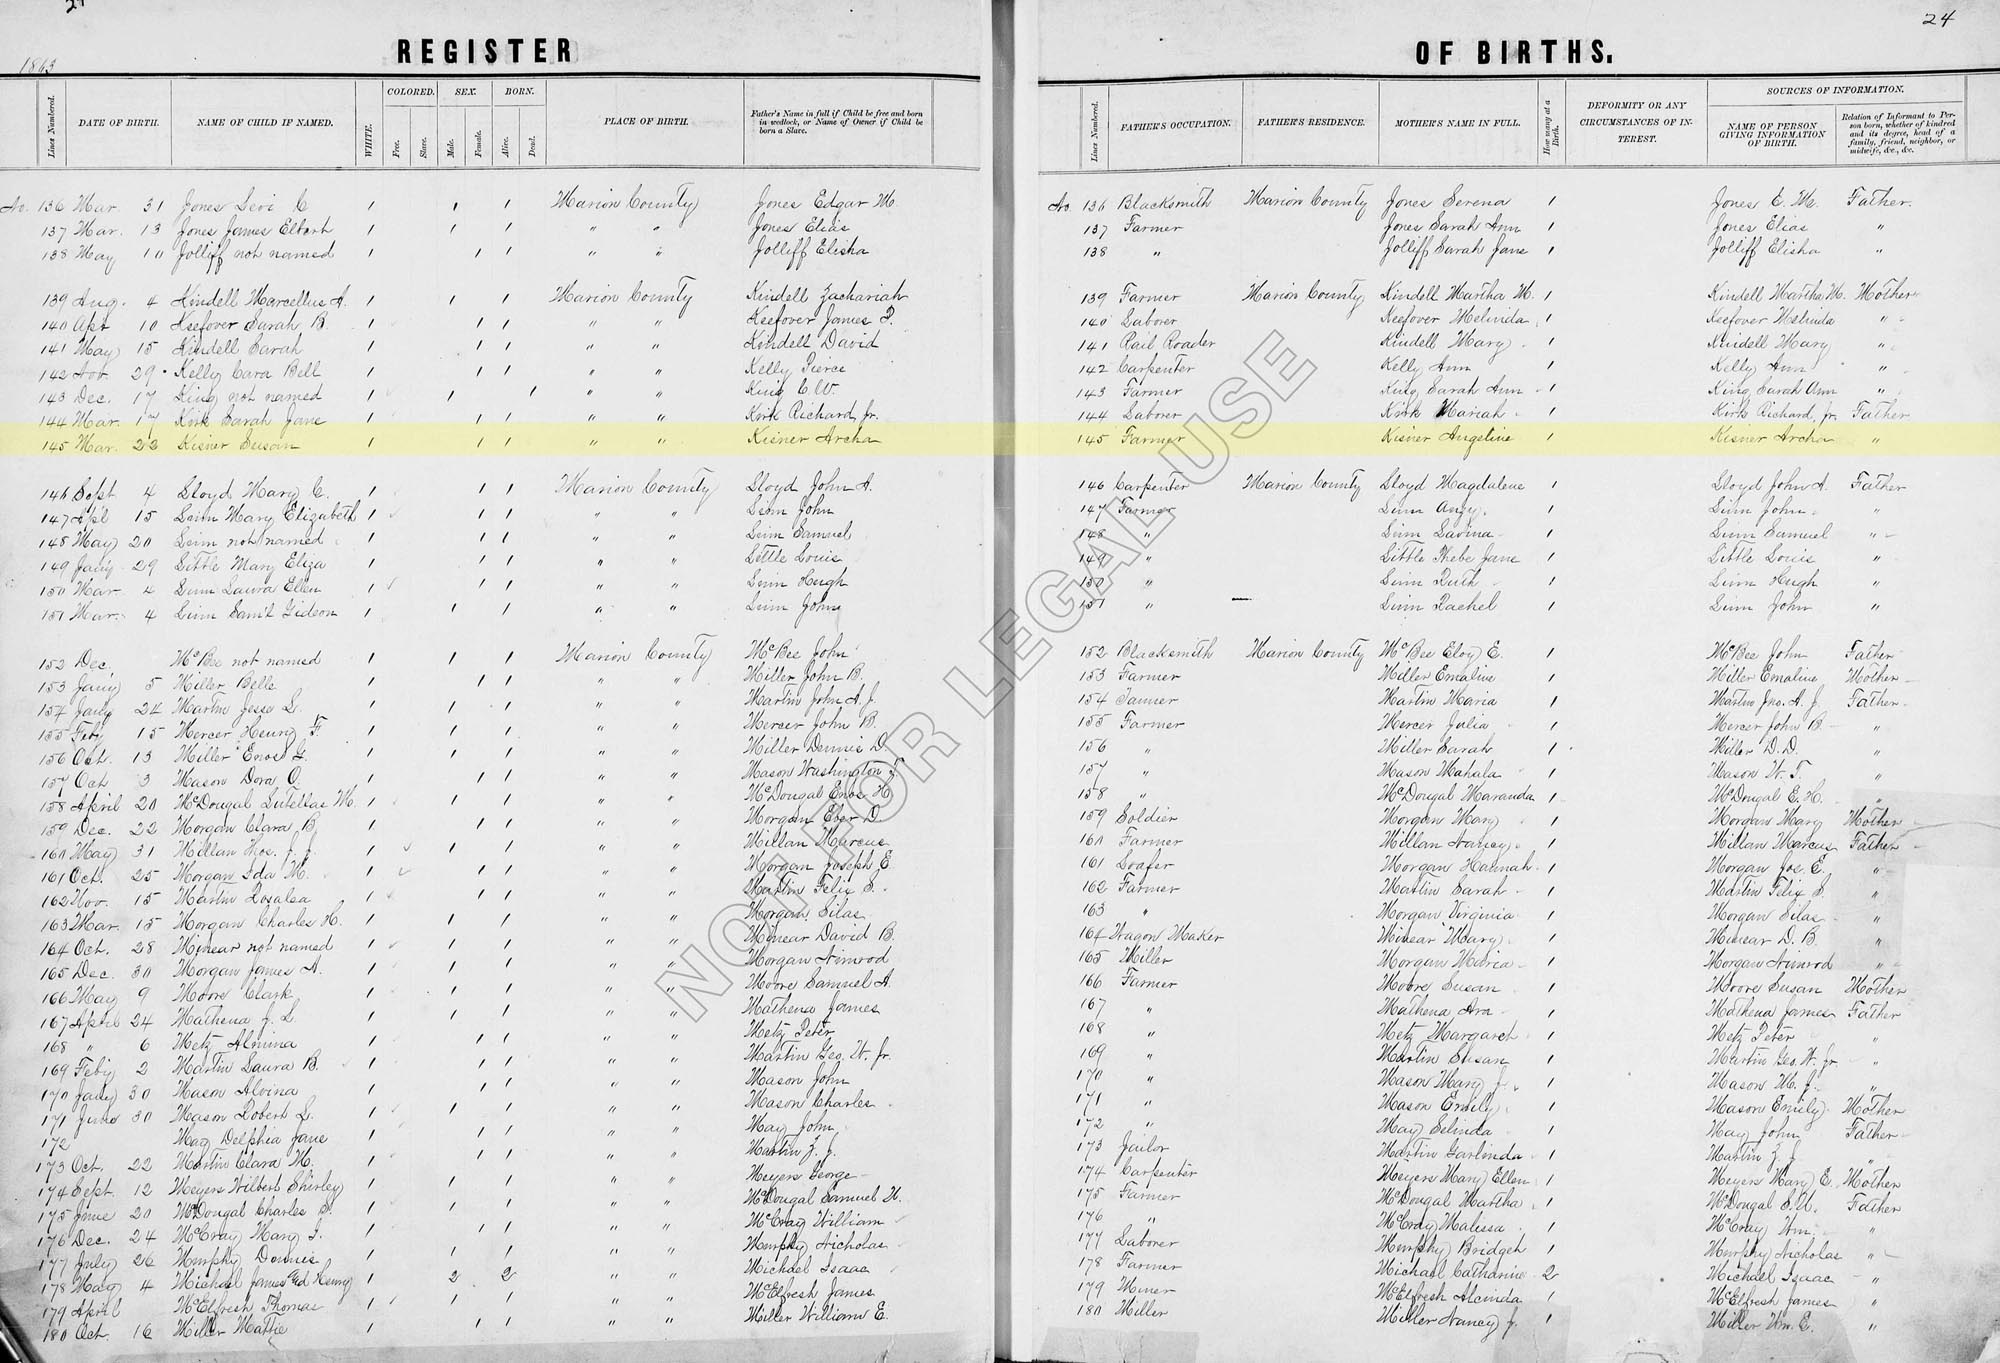 24
24
1863
REGISTER OF BIRTHS.
Lines Numbered. DATE OF BIRTH. NAME OF CHILD IF NAMED. WHITE. COLORED. Free. Slave. SEX. Male. Female. BORN. Alive. Dead. PLACE OF BIRTH. Father's Name in full if Child be free and born in wedlock, or Name of Owner if Child be born a Slave.
Lines Numbered. FATHER'S OCCUPATION. FATHER'S RESIDENCE. MOTHER'S NAME IN FULL. How many at a Birth. DEFORMITY OR ANY CIRCUMSTANCES OF INTEREST. SOURCES OF INFORMATION. NAME OF PERSON GIVING INFORMATION OF BIRTH. Relation of Informant to Person born, whether of kindred and its degree, head of a family, friend, neighbor, or midwife, &c., &c.
No. 136 Mar. 31 Jones Levi C 1 1 1 Marion County Jones Edgar M. No. 136 Blacksmith Marion County Jones Serena 1 Jones E. M. Father.
137 Mar. 13 Jones James Elbert 1 1 1 " " Jones Elias 137 Farmer Jones Sarah Ann 1 Jones Elias "
138 May 10 Jolliff not named 1 1 1 " " Jolliff Elisha 138 " Jolliff Sarah Jane 1 Jolliff Elisha "
139 Aug. 4 Kindell Marcellus A. 1 1 1 Marion County Kindell Zachariah 139 Farmer Marion County Kindell Martha M. 1 Kindell Martha M. Mother
140 Apr 10 Keefover Sarah B. 1 1 1 " " Keefover James P. 140 Laborer Keefover Melinda 1 Keefover Melinda "
141 May 15 Kindell Sarah 1 1 1 " " Kindell David 141 Rail Roader Kindell Mary 1 Kindell Mary "
142 Nov. 29 Kelly Cara Bell 1 1 1 " " Kelly Pierce 142 Carpenter Kelly Ann 1 Kelly Ann "
143 Dec. 17 King not named 1 1 1 " " King C. W. 143 Farmer King Sarah Ann 1 King Sarah Ann "
144 Mar. 17 Kirk Sarah Jane 1 1 1 " " Kirk Richard, Jr. 144 Laborer Kirk Mariah 1 Kirk Richard, Jr. Father
145 Mar. 23 Kisner Susan 1 1 1 " " Kisner Archa 145 Farmer Kisner Angeline 1 Kisner Archa "
146 Sept 4 Lloyd Mary C. 1 1 1 Marion County Lloyd John A. 146 Carpenter Marion County Lloyd Magdalene 1 Lloyd John A. Father
147 Apl 15 Linn Mary Elizabeth 1 1 1 " " Linn John 147 Farmer Linn 1 Linn John "
148 May 20 Linn not named 1 1 1 " " Linn Samuel 148 " Linn Lavina 1 Linn Samuel "
149 Jany 29 Little Mary Eliza 1 1 1 " " Little Louis 149 " Little Phebe Jane 1 Little Louis "
150 Mar. 4 Linn Laura Ellen 1 1 1 " " Linn Hugh 150 " Linn Ruth 1 Linn Hugh "
151 Mar. 4 Linn Sam'l Gideon 1 1 1 " " Linn John 151 " Linn Rachel 1 Linn John "
152 Dec. McBee not named 1 1 1 Marion County McBee John 152 Blacksmith Marion County McBee E. 1 McBee John Father
153 Jany 5 Miller Belle 1 1 1 " " Miller John B. 153 Farmer Miller Emaline 1 Miller Emaline Mother
154 Jany 24 Martin Jesse L. 1 1 1 " " Martin John A. J. 154 Martin Maria 1 Martin Jno. A. J. Father
155 Feby 15 Mercer Henry F. 1 1 1 " " Mercer John B. 155 Farmer Mercer Julia 1 Mercer John B. "
156 Oct. 13 Miller Enos G. 1 1 1 " " Miller Dennis D. 156 " Miller Sarah 1 Miller D. D. "
157 Oct 3 Mason Dora O. 1 1 1 " " Mason Washington T. 157 " Mason Mahala 1 Mason W. T. "
158 April 20 McDougal Lutellas M. 1 1 1 " " McDougal Enos H. 158 " McDougal Maranda 1 McDougal E. H. "
159 Dec. 22 Morgan Clara B. 1 1 1 " " Morgan Eber D. 159 Soldier Morgan Mary 1 Morgan Mary Mother
160 May 31 Millan Thos. J. J. 1 1 1 " " Millan Marcus 160 Farmer Millan Nancy 1 Millan Marcus Father
161 Oct. 25 Morgan Ida M. 1 1 1 " " Morgan Joseph E. 161 Loafer Morgan Hannah 1 Morgan Joe E. "
162 Nov. 15 Martin Rosalea 1 1 1 " " Martin Felix S. 162 Farmer Martin Sarah 1 Martin Felix S. "
163 Mar. 15 Morgan Charles H. 1 1 1 " " Morgan Silas 163 " Morgan Virginia 1 Morgan Silas "
164 Oct. 28 Minear not named 1 1 1 " " Minear David B. 164 Wagon Maker Minear Mary 1 Minear D. B. "
165 Dec. 30 Morgan James A. 1 1 1 " " Morgan Nimrod 165 Miller Morgan Maria 1 Morgan Nimrod "
166 May 9 Moore Clark 1 1 1 " " Moore Samuel A. 166 Farmer Moore Susan 1 Moore Susan Mother
167 April 24 Mathena J. L. 1 1 1 " " Mathena James 167 " Mathena Ara 1 Mathena James Father
168 " 6 Metz Almina 1 1 1 " " Metz Peter 168 " Metz Margaret 1 Metz Peter "
169 Feby 2 Martin Laura B. 1 1 1 " " Martin Geo. W. Jr. 169 " Martin Susan 1 Martin Geo. W. Jr "
170 Jany 30 Mason Alvina 1 1 1 " " Mason John 170 " Mason Mary J. 1 Mason M. J. "
171 June 30 Mason Robert L. 1 1 1 " " Mason Charles 171 " Mason Emily 1 Mason Emily Mother
172 May Delphia Jane 1 1 1 " " May John 172 " May Selinda 1 May John Father
173 Oct. 22 Martin Clara M. 1 1 1 " " Martin Z. J. 173 Jailor Martin Garlinda 1 Martin Z. J. "
174 Sept. 12 Meyers Wilbert Shirley 1 1 1 " " Meyers George 174 Carpenter Meyers Mary Ellen 1 Meyers Mary E. Mother
175 June 20 McDougal Charles 1 1 1 " " McDougal Samuel U. 175 Farmer McDougal Martha 1 McDougal S. U. Father
176 Dec. 24 McCray Mary 1 1 1 " " McCray William 176 " McCray Malissa 1 McCray Wm. "
177 July 26 Murphy Dennis 1 1 1 " " Murphy Nicholas 177 Laborer Murphy Bridget 1 Murphy Nicholas "
178 May 4 Michael James and Henry 1 2 2 " " Michael Isaac 178 Farmer Michael Catharine 2 Michael Isaac "
179 April McElfresh Thomas 1 1 1 " " McElfresh James 179 Miner McElfresh Alcinda 1 McElfresh James "
180 Oct. 16 Miller Mattie 1 1 1 " " Miller William E. 180 Miller Miller Nancy J. 1 Miller Wm. E. "
NOT FOR LEGAL USE